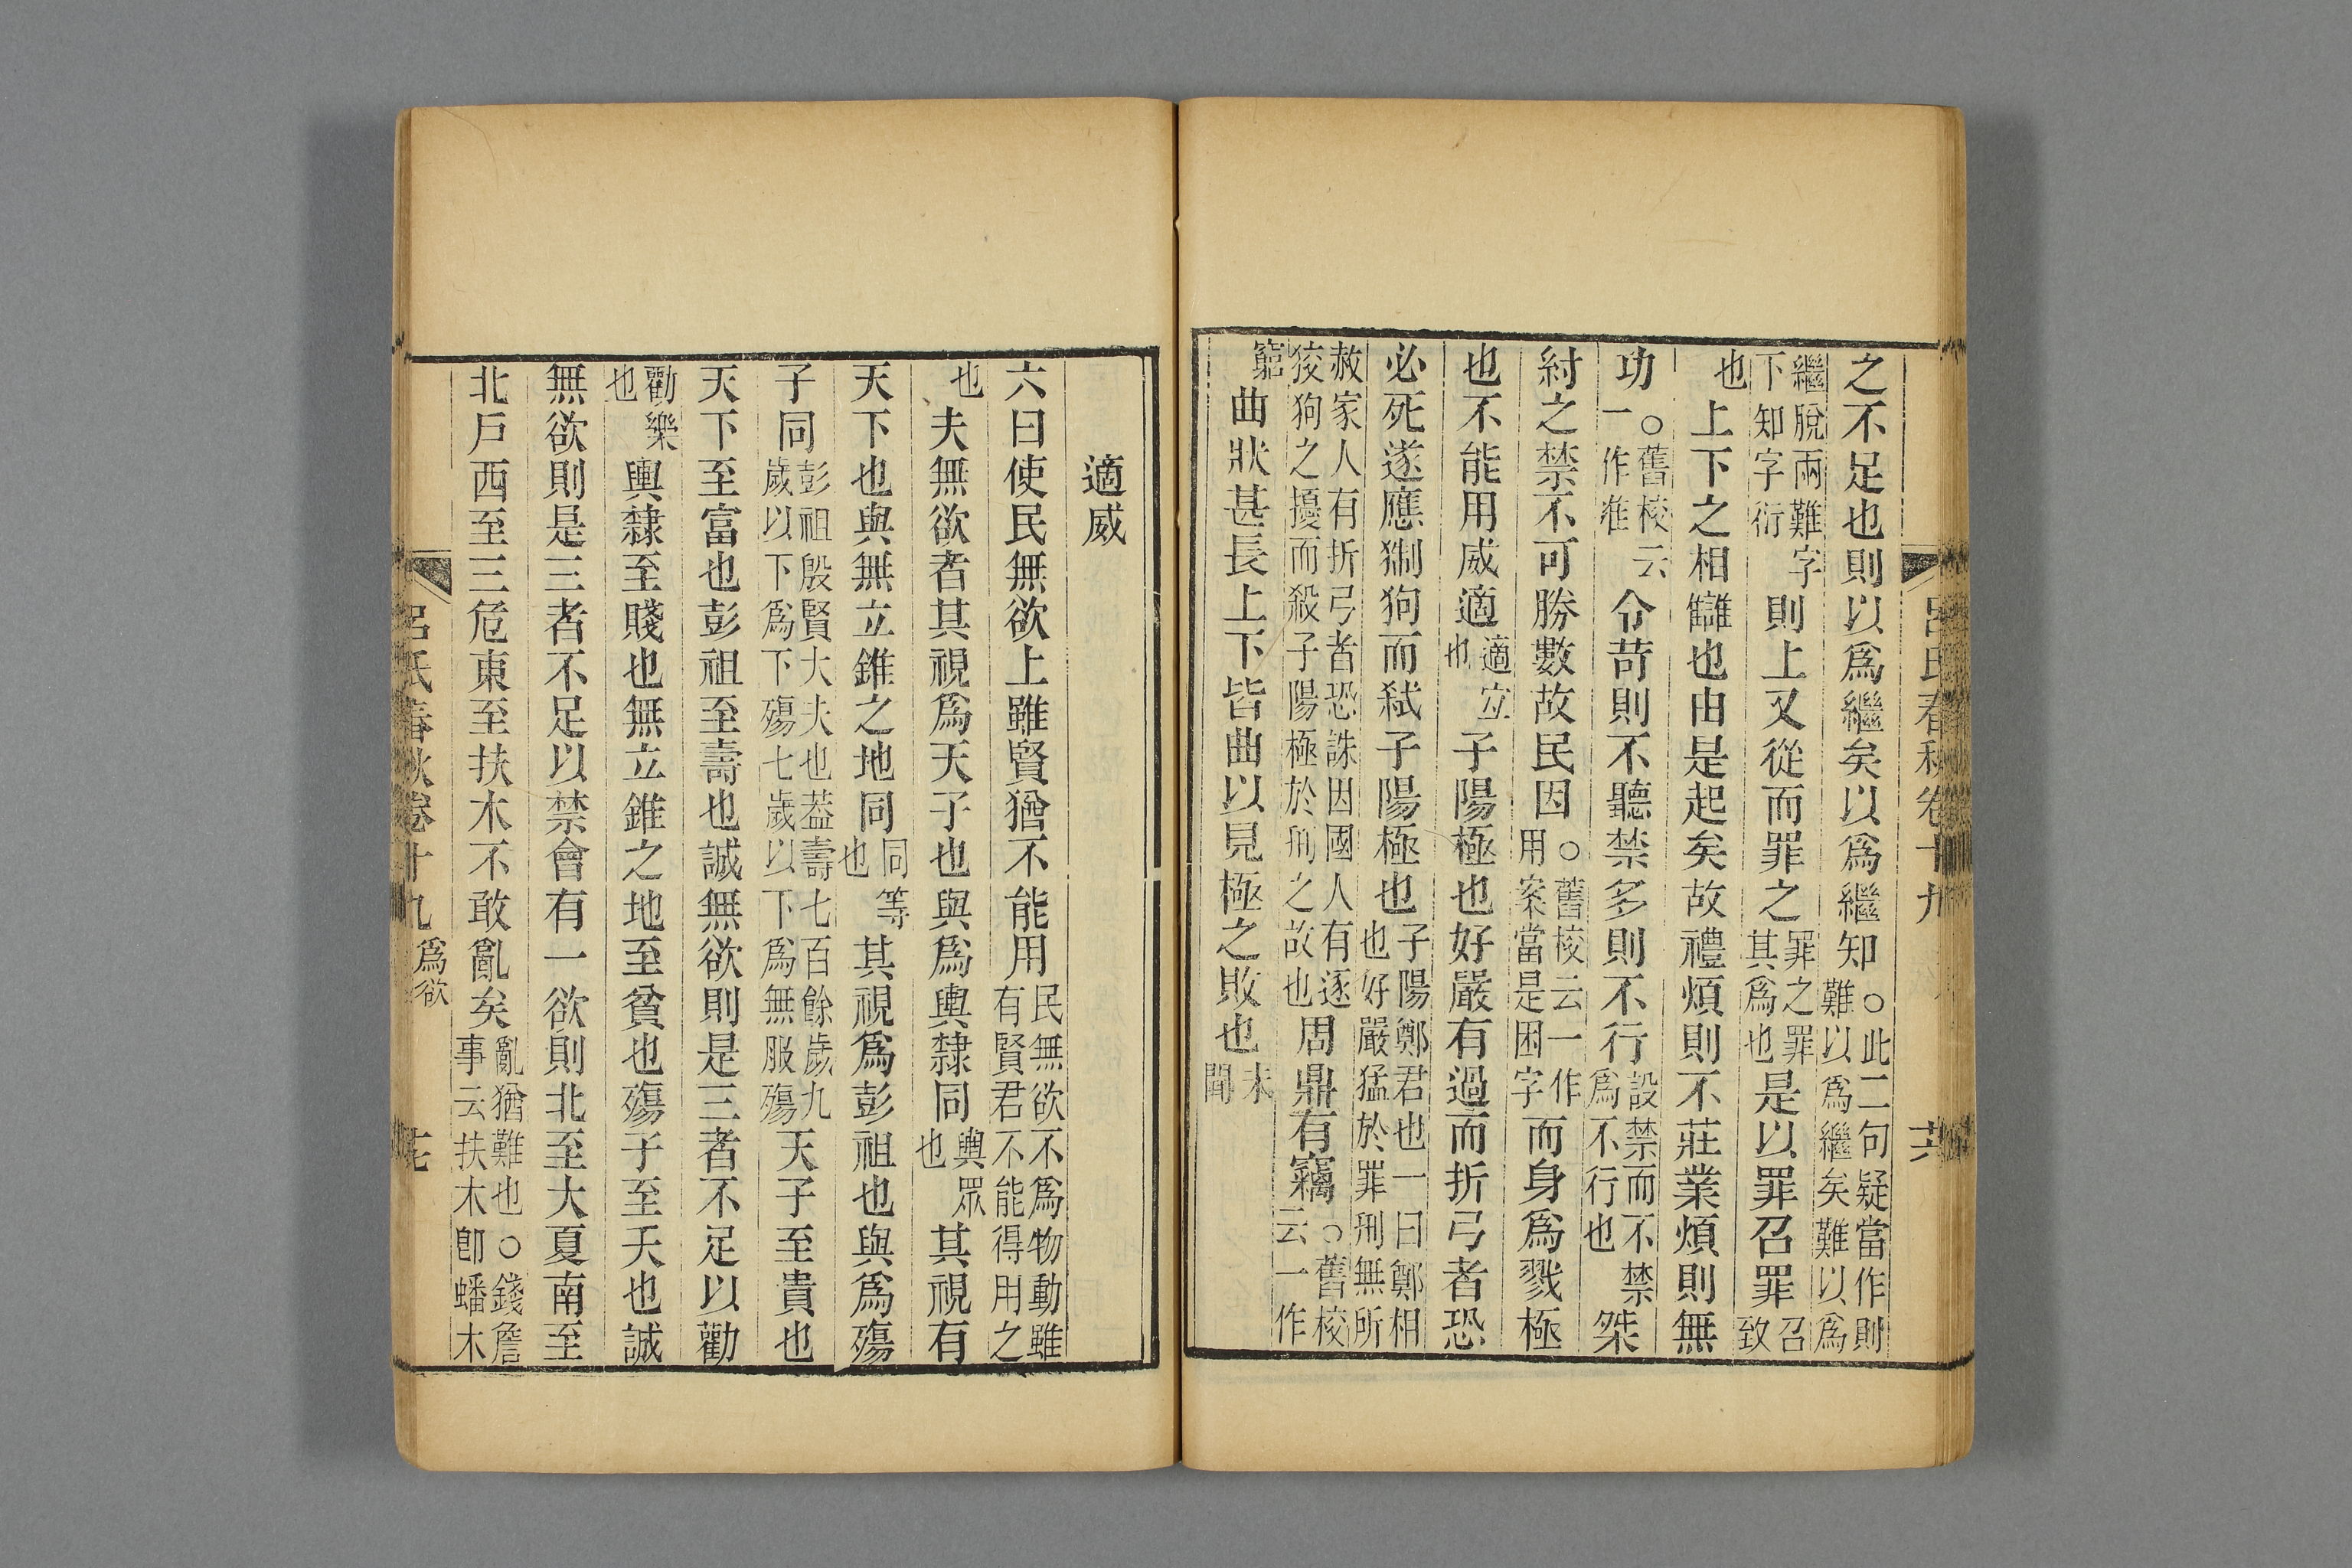 呂氏春秋卷十九 廿六
之不足也則以爲繼矣以爲繼知○此二句疑當作則難以爲繼矣難以爲
繼脫兩難字下知字衍則上又從而罪之罪之罪其爲也是以罪召罪召致
也上下之相讎也由是起矣故禮煩則不莊業煩則無
功○舊校云一作准令苛則不聽禁多則不行設禁而不禁爲不行也桀
紂之禁不可勝數故民因○舊校云一作用案當是困字而身爲戮極
也不能用威適適宜也子陽極也好嚴有過而折弓者恐
必死遂應猘狗而弑子陽極也子陽鄭君也一曰鄭相也好嚴猛於罪刑無所
赦家人有折弓者恐誅因國人有逐狡狗之擾而殺子陽極於刑之故也周鼎有竊○舊校云一作
窮曲狀甚長上下皆曲以見極之敗也未聞
適威
六曰使民無欲上雖賢猶不能用民無欲不爲物動雖有賢君不能得用之
也夫無欲者其視爲天子也與爲輿隸同輿眾也其視有
天下也與無立錐之地同同等也其視爲彭祖也與爲殤
子同彭祖殷賢大夫也葢壽七百餘歲九歲以下爲下殤七歲以下爲無服殤天子至貴也
天下至富也彭祖至壽也誠無欲則是三者不足以勸
勸樂也輿隸至賤也無立錐之地至貧也殤子至夭也誠
無欲則是三者不足以禁會有一欲則北至大夏南至
北戶西至三危東至扶木不敢亂矣亂猶難也○錢詹事云扶木卽蟠木
呂氏春秋卷十九爲欲 廿七